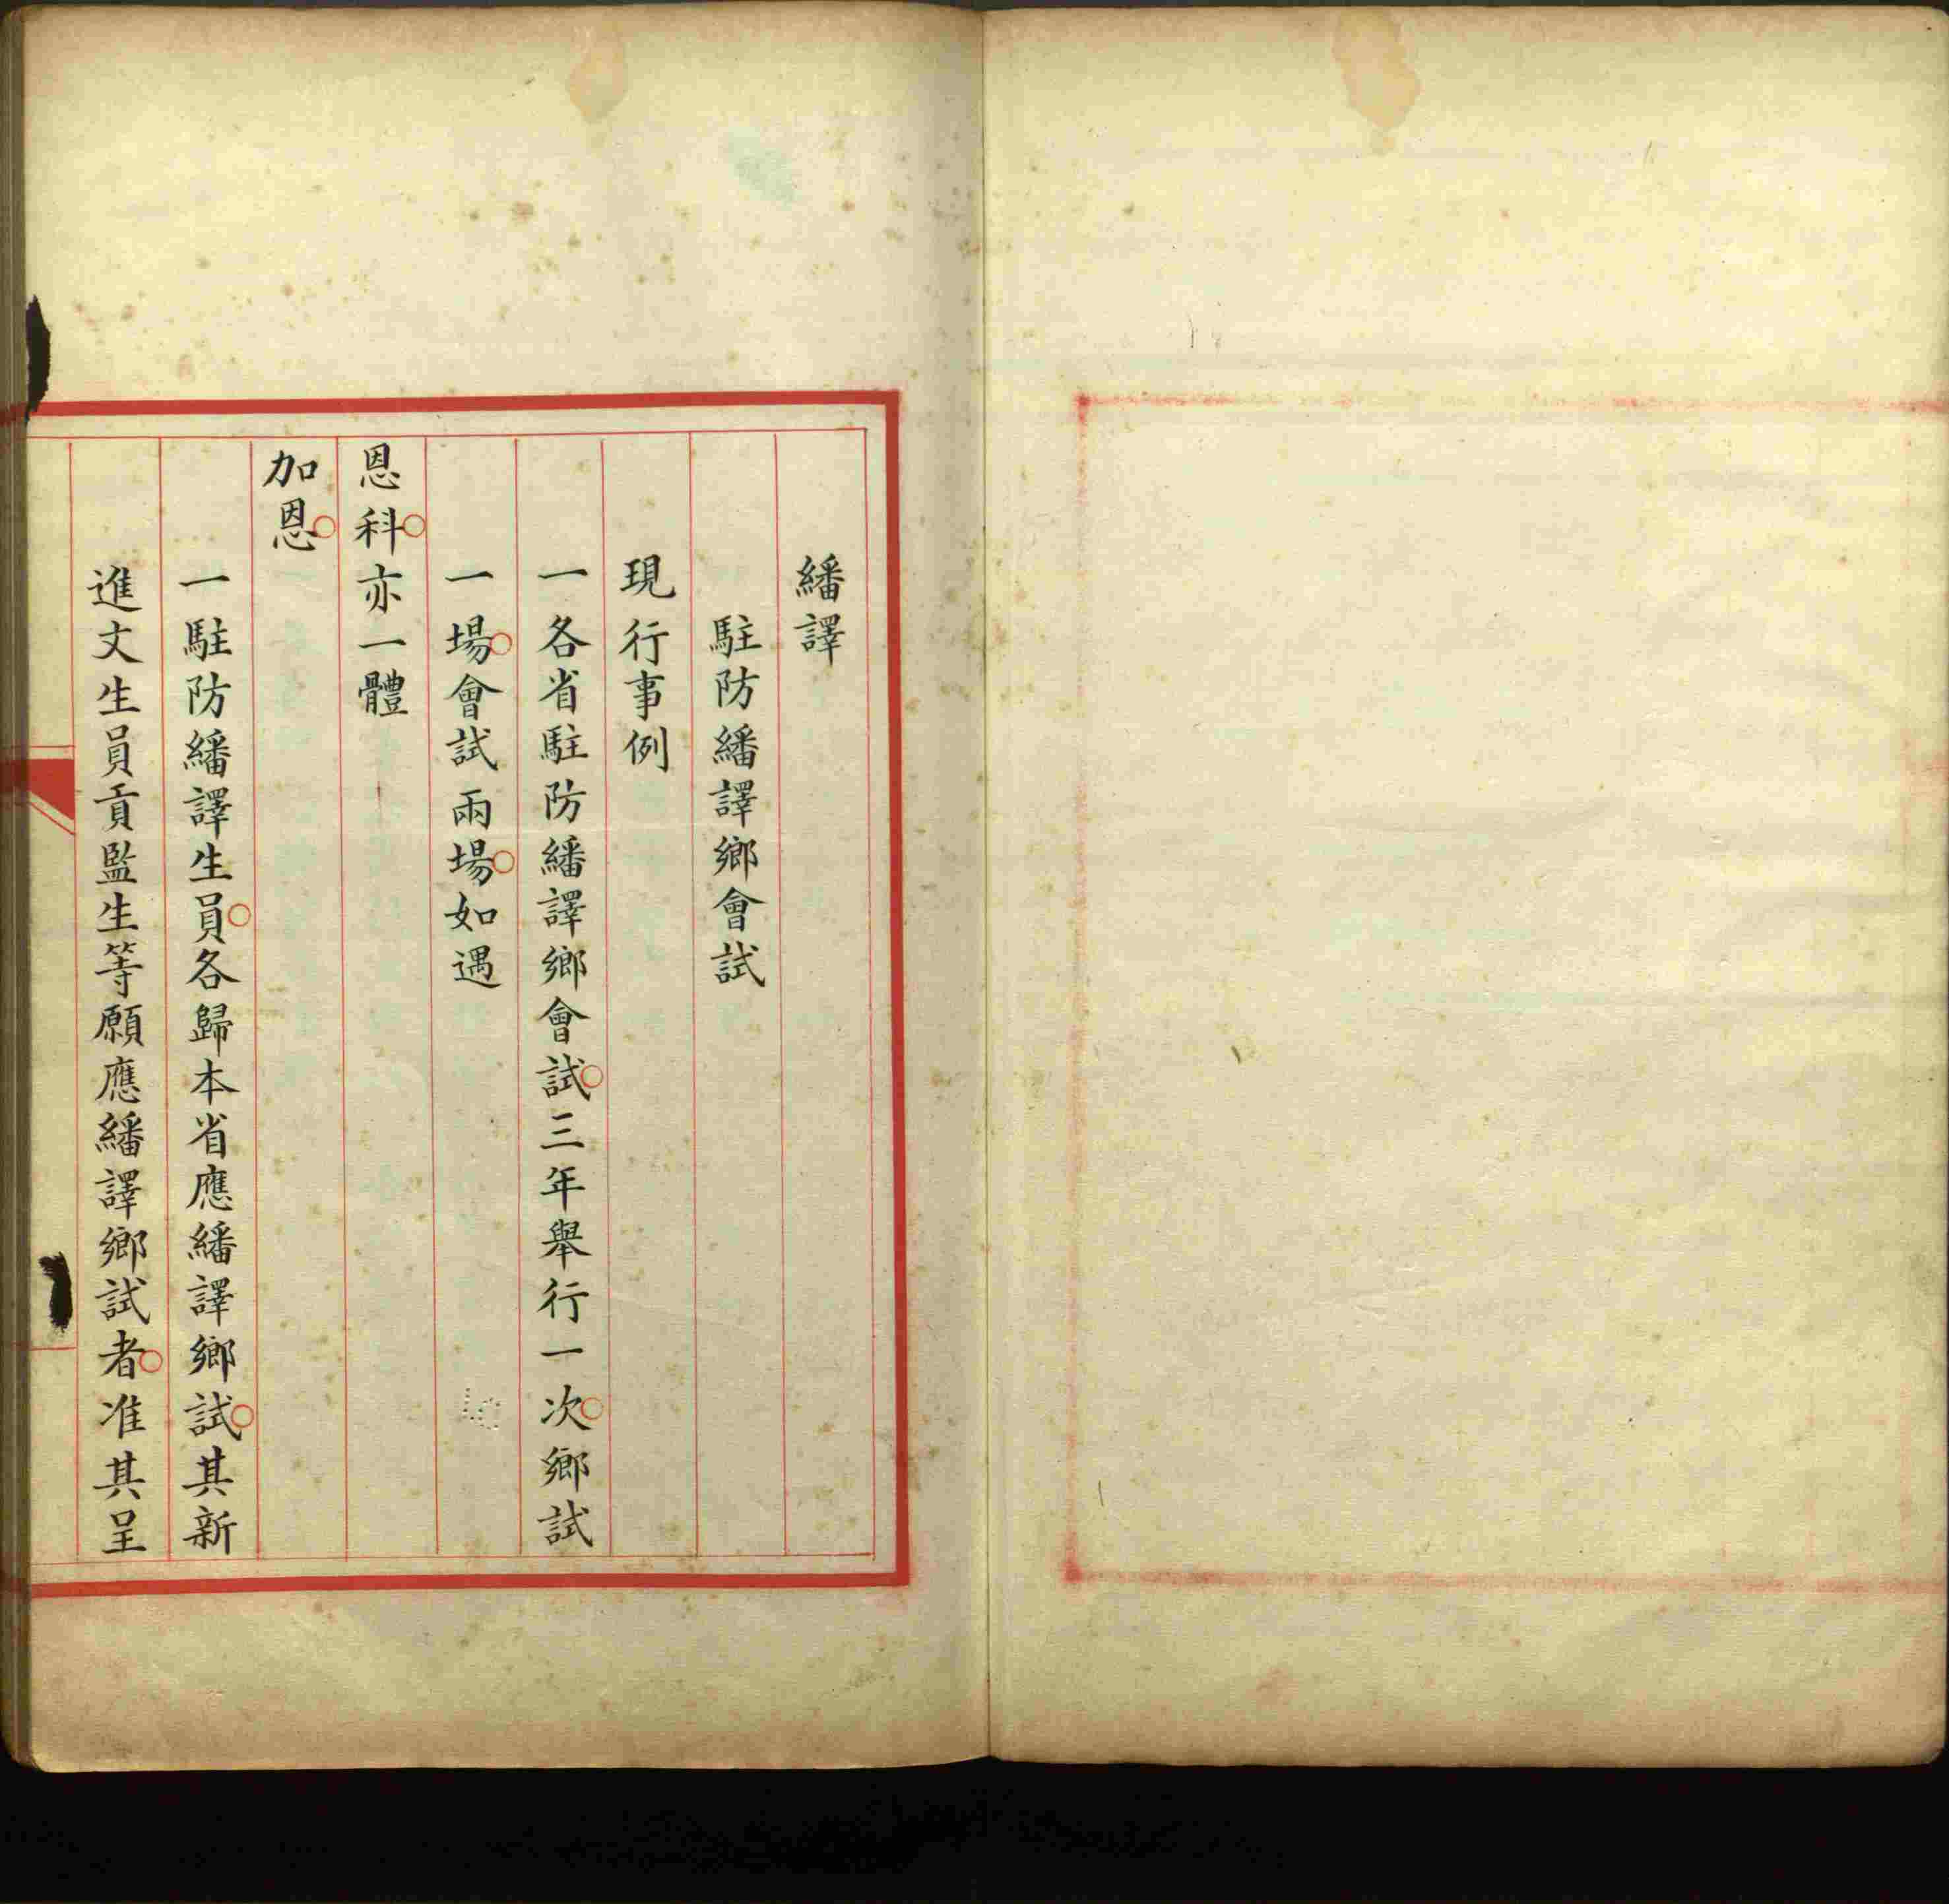 繙譯
駐防繙譯鄉會試
現行事例
一各省駐防繙譯鄉會試三年舉行一次鄉試
一場會試兩場如遇
恩科亦一體
加恩
一駐防繙譯生員各歸本省應繙譯鄉試其新
進文生員貢監生等願應繙譯鄉試者准其呈